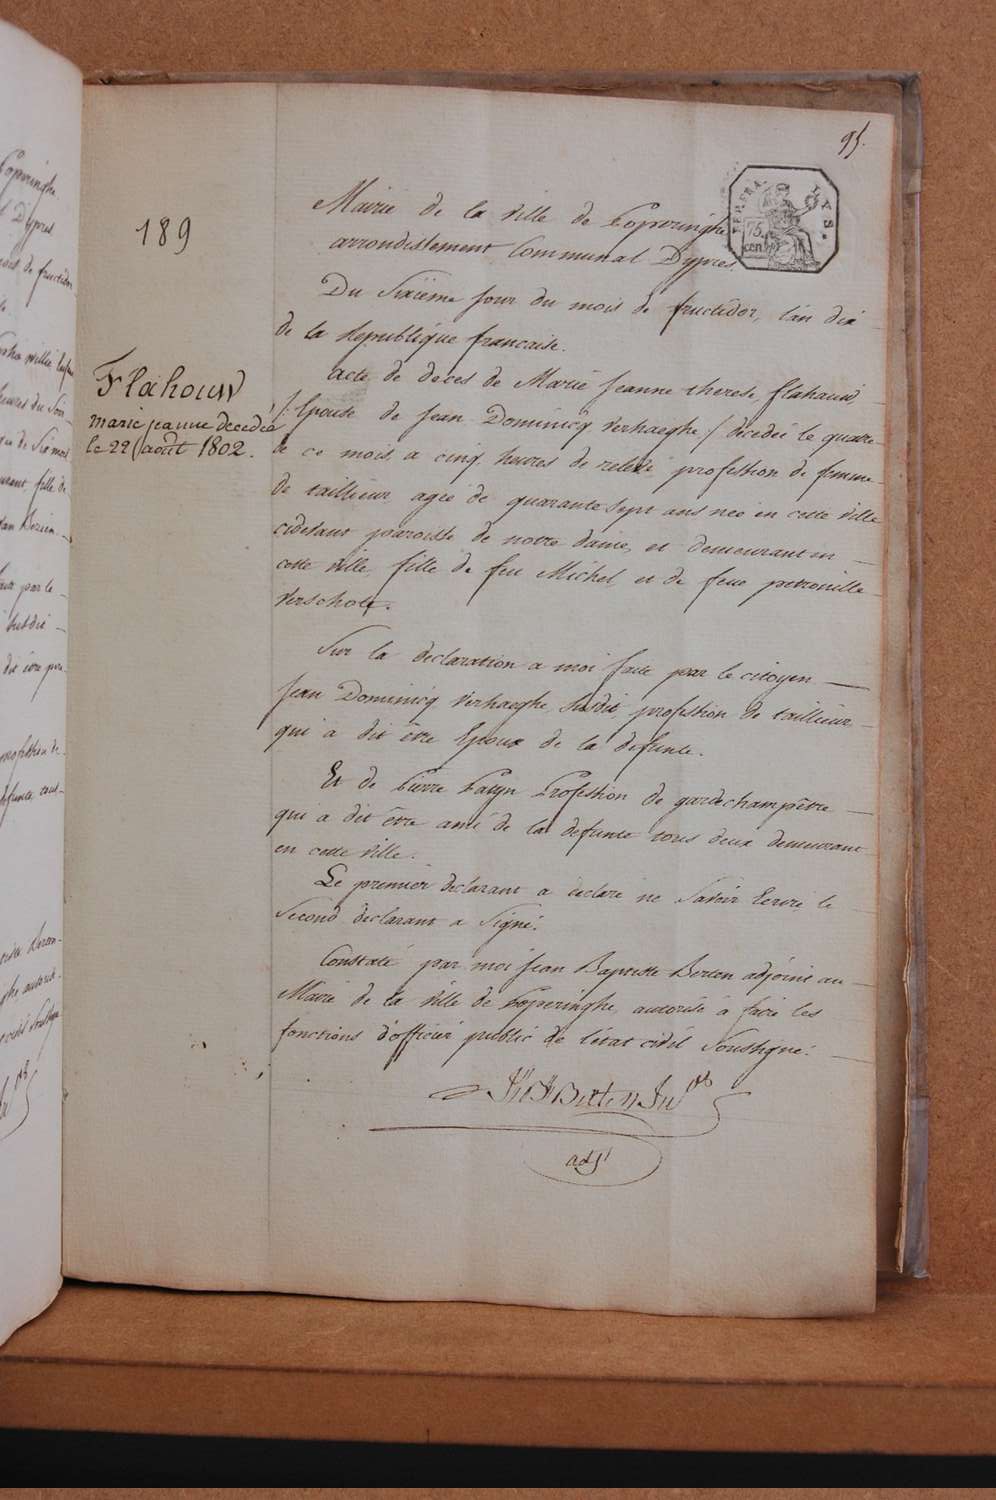 95.
REP. FRA.
LYS.
75.
cent.
189
Mairie de la Ville de Poperinghe
arrondissement Communal D'ypres
Du Sixième Jour du mois de fructidor, l'an dix
de la Republique francaise.
Flahouw
marie jeanne decedée
le 22 août 1802.
Acte de deces de Marie Jeanne therese flahauw,
/: Epouse de Jean Dominicq Verhaeghe :/ decedée le quatre
de ce mois a cinq heures de relevé, profession de femme
de taillieur, agée de quarante sept ans née en cette Ville
cidevant paroisse de notre dame, et demeurant en
cette Ville, fille de feu Michel, et de feue petronille
Verschote.
Sur la declaration a moi faite par le citoyen
Jean Dominicq Verhaeghe, susdit, profession de taillieur
qui a dit être Epoux de la defunte.
Et de Pierre Patyn Profession de gardechampêtre
qui a dit être ami de la defunte tous deux demeurant
en cette Ville.
Le premier declarant a declaré ne Savoir Ecrire, le
Second declarant a Signé.
Constaté par moi Jean Baptiste Berten adjoint au
Maire de la Ville de Poperinghe, autorisé à faire les
fonctions d'officier public de l'état civil Soussigné.
Berten
adj^t